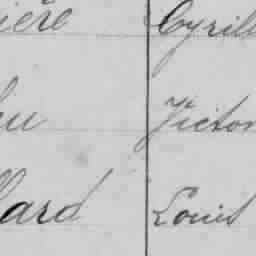 ière Cyrill
eu Victor
lard Louis